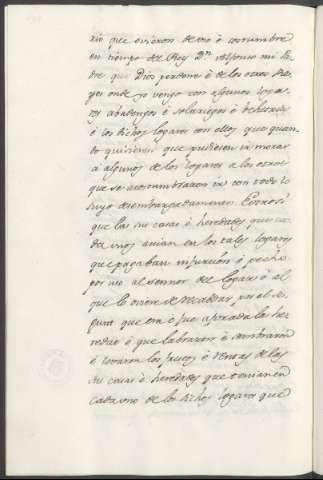 zio que ovieron de uso é costumbre
en tiempo del Rey Dn. Alfonso mi Pa-
dre que Dios perdone é de los otros Re-
yes onde yo vengo con algunos logar-
es abadengos é solariegos é behetrias
é los dichos logares con ellos que quan-
to quisieren que pudiesen ir morar
á algunos de los logares á los otros
que se acostumbraron ir con todo lo
suyo desembargadamente. Et otrosi
que las sus casas é heredades que ca-
da unos avian en los tales logares
que pagaban infurcion é pecho
por ello al sennor del logar ó al
que lo oviere de recabdar, por el
que era é fue apreciada la he-
redad é que labraron é
é levaron los frutos é rentas de las
sus casas é heredades que tenian en
cada uno de los dichos logares que